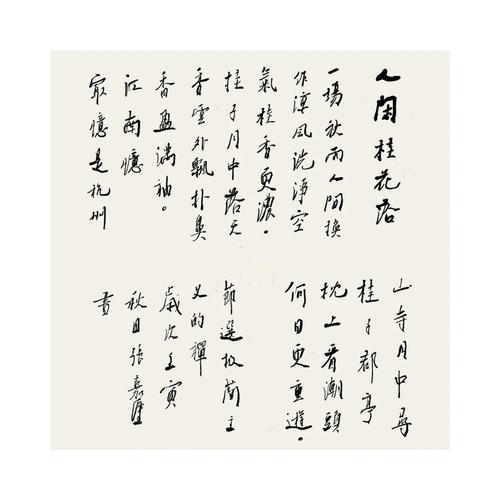 人閑桂花落
一場秋雨人間換
作涼風洗淨空
氣桂香更濃。
桂子月中落天
香雲外飄扑鼻
香盈滿袖。
江南憶
最憶是杭州
山寺月中尋
桂子郡亭
枕上看潮頭
何日更重遊。
節選蘭主
义的禪
歲次壬寅
秋日張嘉
書